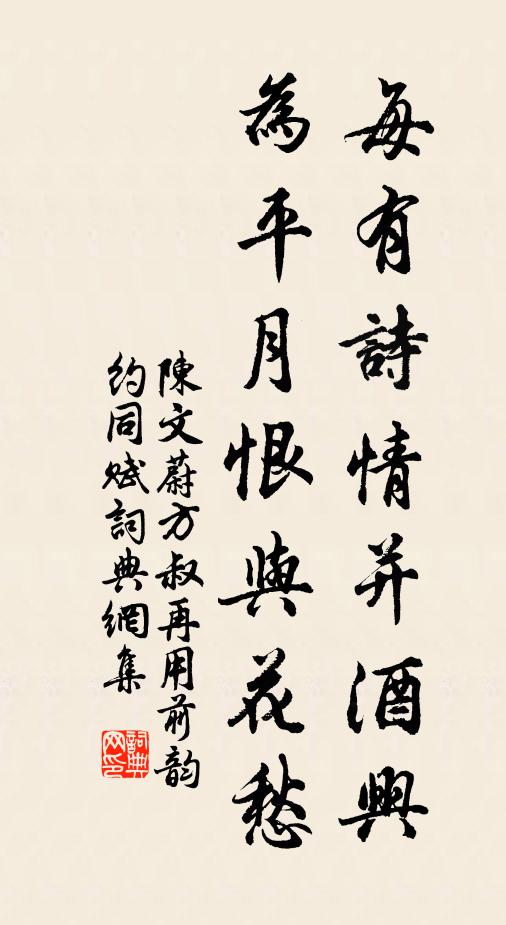 每有詩情并酒興
為平月恨與花愁
陳文蔚方叔再用前韵
約同賦詞典網集
詞典網印